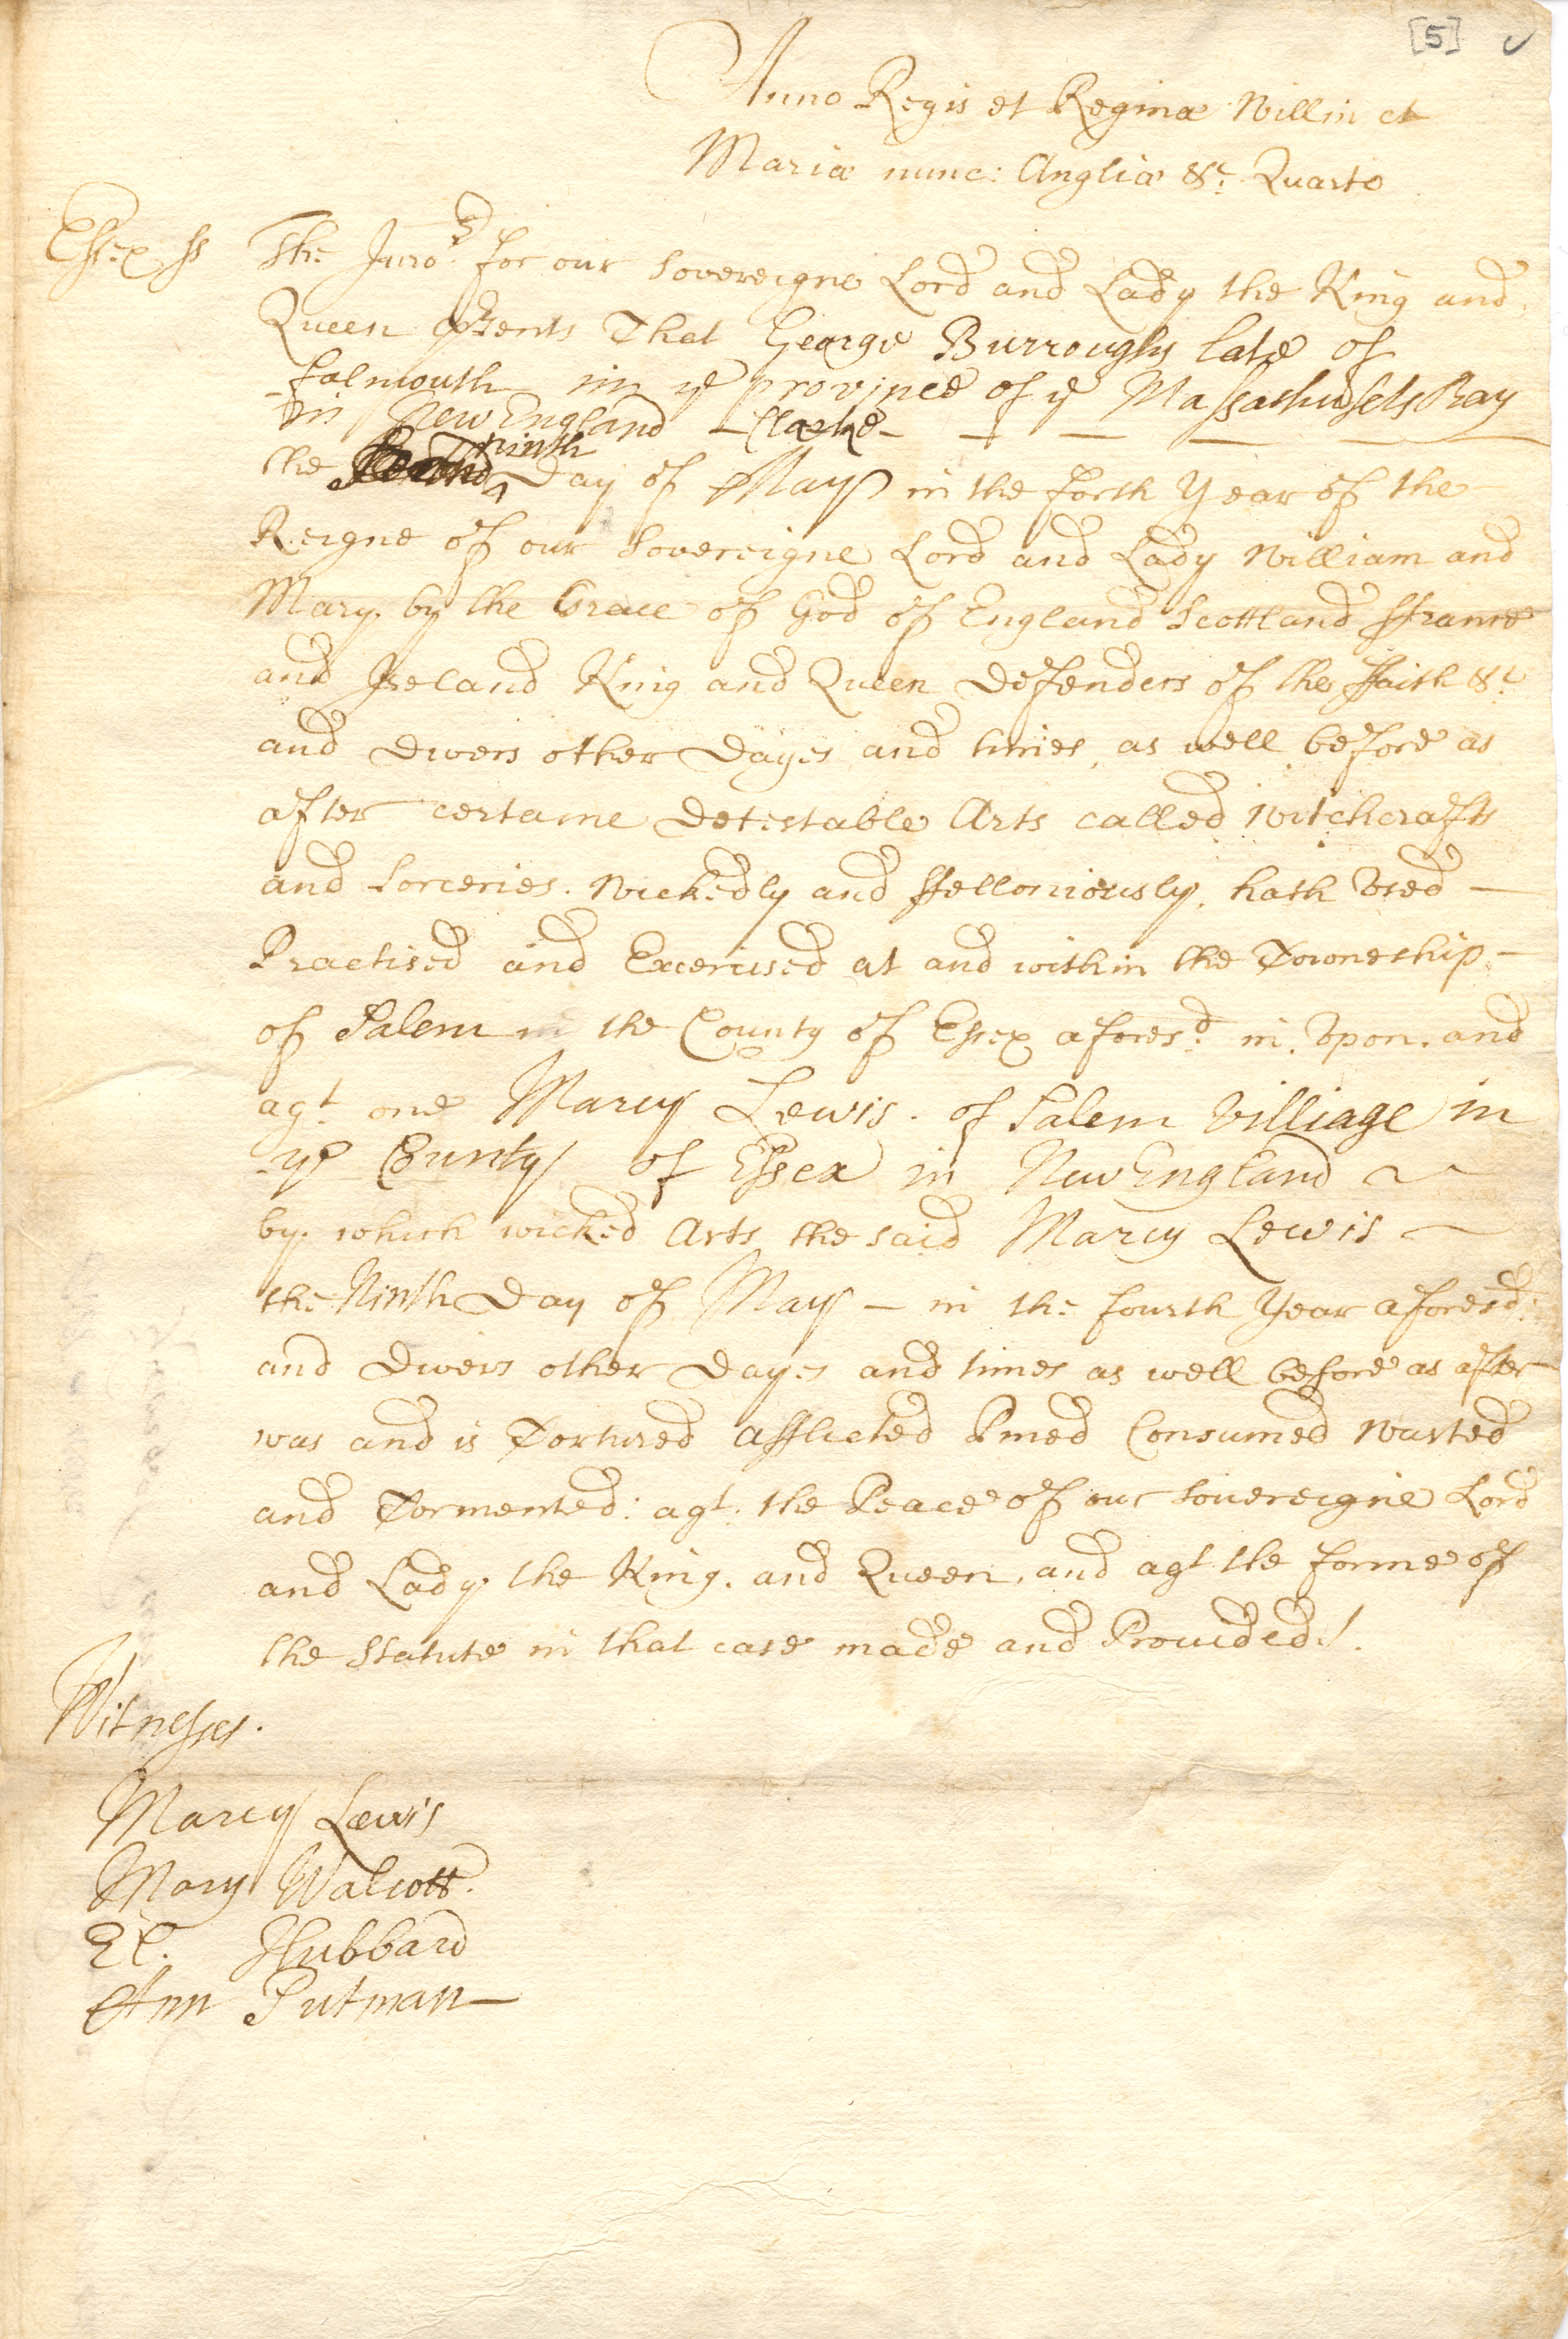 [5]
Anno Regis et Reginæ Willm et
Mariæ nunc: Angliæ &c: Quarto
Essex ss The Juro.rs for our Sovereigne Lord and Lady the King and
Queen p'sents That George Burroughs late of
falmouth in ye province of ye Massathusets Bay
in New England - Clarke -
the ninth Day of May in the forth Year of the
Reigne of our Sovereigne Lord and Lady William and
Mary by the Grace of God of England Scottland ffrance
and Ireland King and Queen Defenders of the ffaith &c
and Divers other Dayes and times, as well before as
after certaine Detestable Arts called Witchcrafts
and Sorceries. Wickedly and ffelloniously, hath Vsed -
Practised and Excercised at and within the Towneship -
of Salem in the County of Essex aforesd. in, Vpon, and
agt one Marcy Lewis. of Salem Villiage in
ye County of Essex in New England ~
by which wicked Arts the said Marcy Lewis ~
the Ninth Day of May - in the fourth Year aforesd:
and Divers other Dayes and times as well before as after
was and is Tortured Afflicted Pined Consumed Wasted
and Tormented: agt: the Peace of our Souereigne Lord
and Lady the King. and Queen, and agt the forme of
the Statute in that case made and Prouided.
Witnesses.
Marcy Lewis
Mary Walcott.
El. Hubbard
Ann Putman